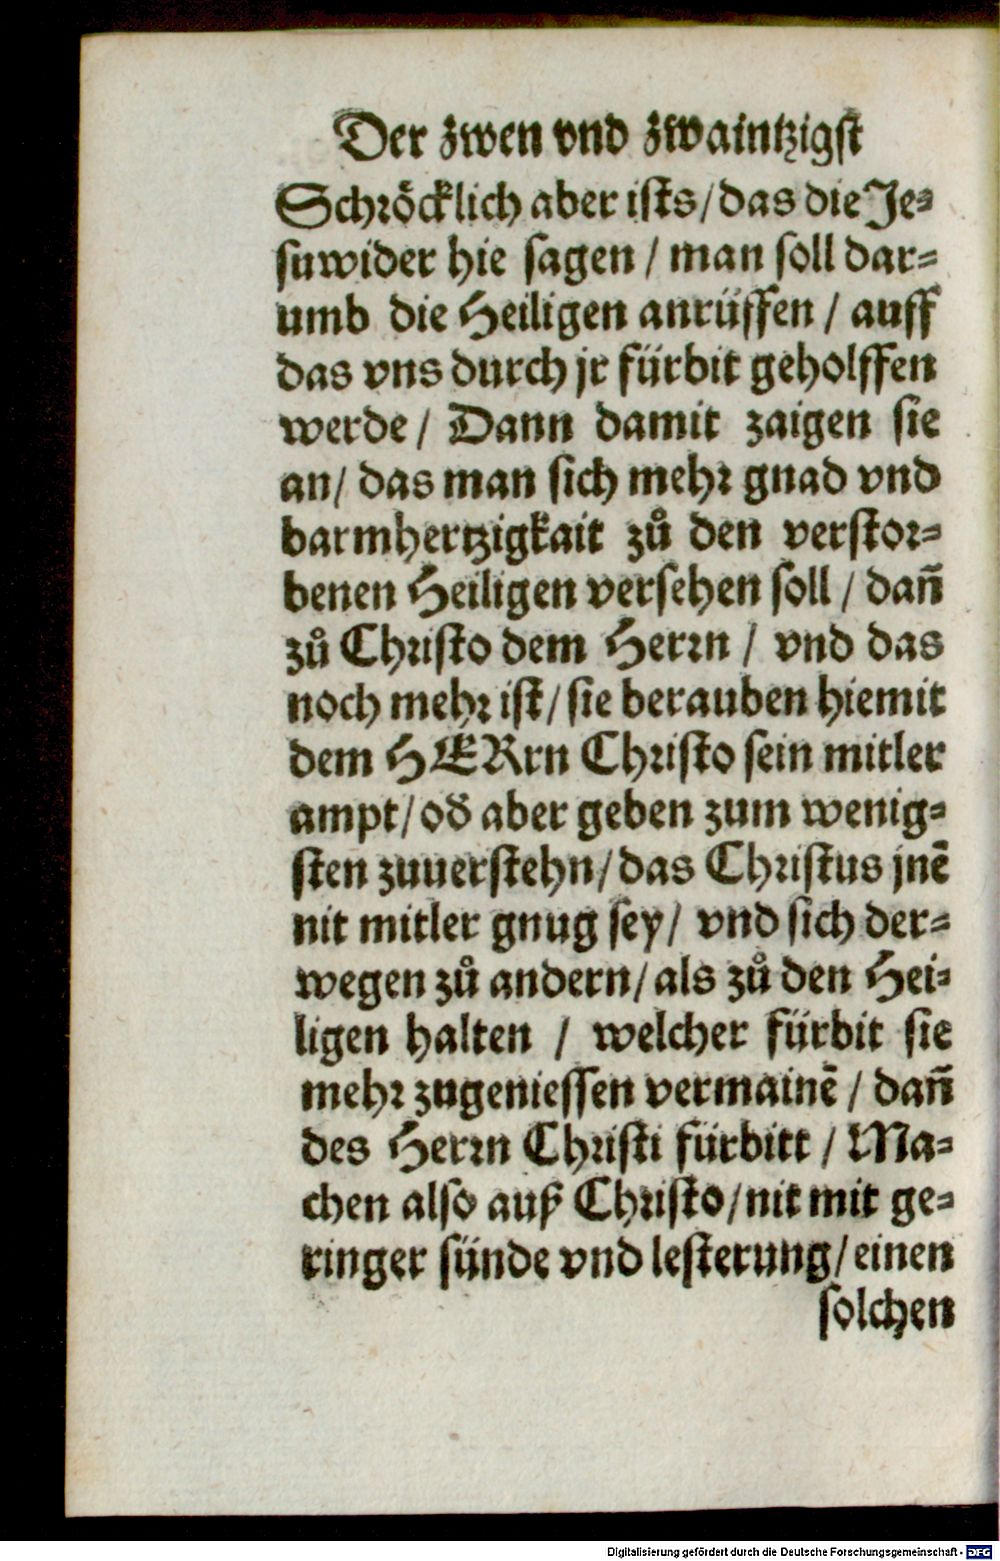 Der zwen vnd zwaintzigst
Schröcklich aber ists/das die Je⸗
suwider hie sagen / man soll dar⸗
umb die Heiligen anrüffen / auff
das vns durch jr fürbit geholffen
werde / Dann damit zaigen sie
an/ das man sich mehr gnad vnd
barmhertzigkait zů den verstor⸗
benen Heiligen versehen soll / dañ
zů Christo dem Herrn / vnd das
noch mehr ist/ sie berauben hiemit
dem HERrn Christo sein mitler
ampt/ od̄ aber geben zum wenig⸗
sten zuuerstehn/ das Christus jnē
nit mitler gnug sey/ vnd sich der⸗
wegen zů andern/ als zů den Hei⸗
ligen halten / welcher fürbit sie
mehr zugeniessen vermainē / dañ
des Herrn Christi fürbitt / Ma⸗
chen also auß Christo/ nit mit ge⸗
ringer sünde vnd lesterung/ einen
solchen
Digitalisierung gefördert durch die Deutsche Forschungsgemeinschaft - DFG